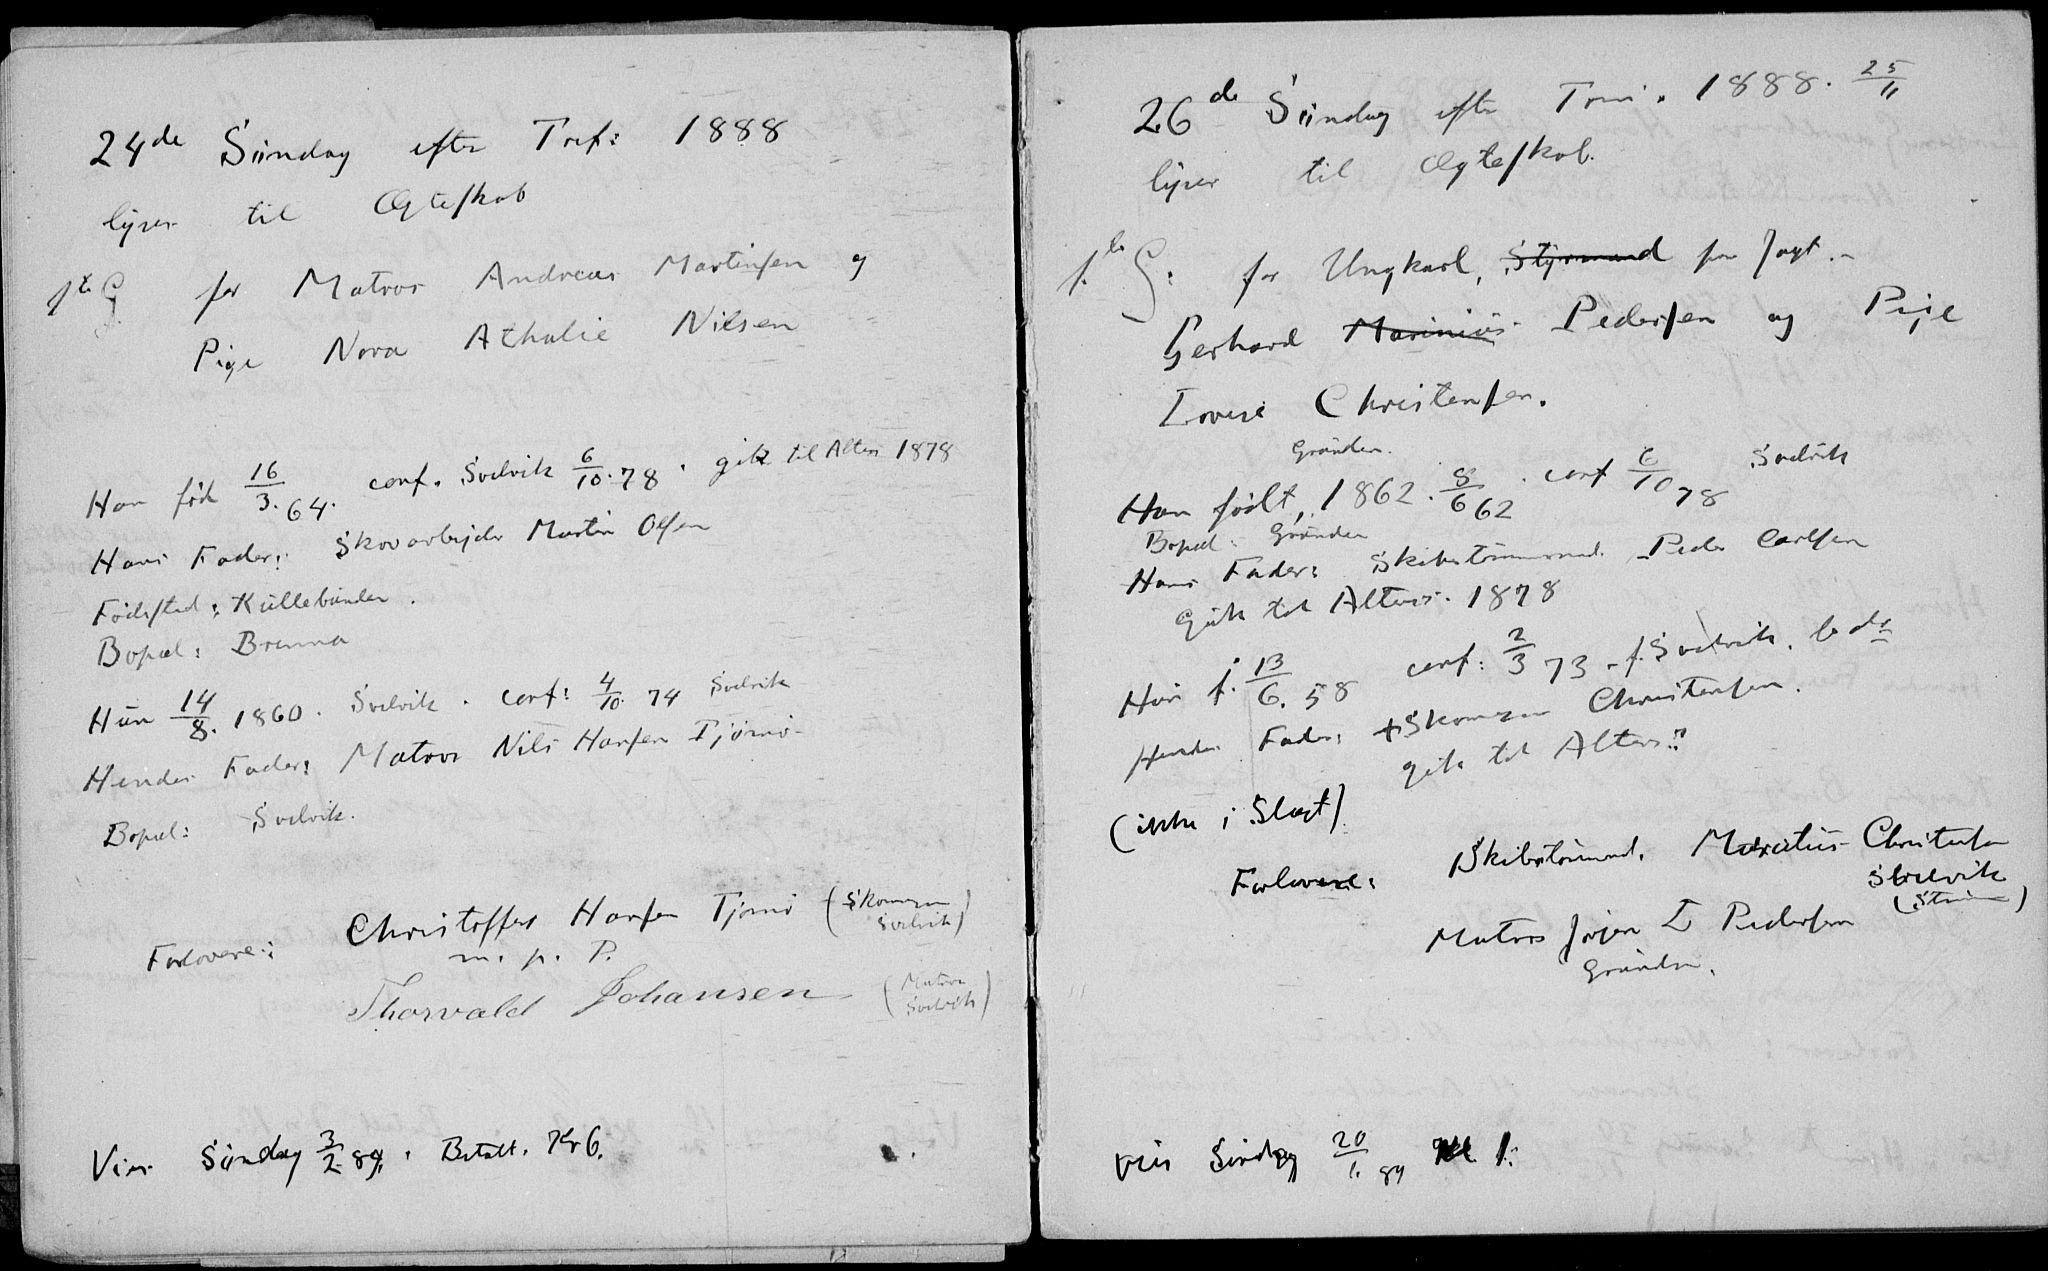 24de Søndag efter Tref: 1888
lyses til Ægteskab
1ste G for Matros Andreas Martinsen og
Pige Nora Athalie Nilsen
Han fød 16/3. 64. conf. Svelvik 6/10. 78. gik til Alters 1878
Hans Fader: Skovarbejder Martin Olsen
Fødested: Kullebunden.
Bopæl: Brenna
Hun 14/8. 1860. Svelvik. conf: 4/10. 74 Svelvik
Hendes Fader: Matros Nils Hansen Tjømø
Bopæl: Svelvik.
Forlovere: Christoffer Hansen Tjømø (Skomager
Svelvik)
m. p. P.
Thorvald Johansen (Matros
Svelvik)
Vies Søndag 3/2. 89. Betalt. Kr 6.
26de Søndag efter Trin. 1888. 25/11
lyses til Ægteskab.
1. G: for Ungkarl, Styrmand
Gerhard Marinius Pedersen og Pige
Lovise Christensen.
Grunden.
Han født, 1862. 8/6 62. conf 6/10 78 Svelvik
Bopæl: Grunden
Hans Fader: Skibstømmermd. Peder Carlsen
Gik til Alters. 1878
Hun f. 13/6. 58 conf: 2/3 73 - f. Svelvik.
Hendes Fader: + Skomager Christensen.
gik til Alters:
(ikke i Slægt)
Forlovere: Skibstømmermd. Christensen
Svelvik
Matros Jørgen L Pedersen
Grunden.
vies Søndag 20/1. 89 Kl 1.